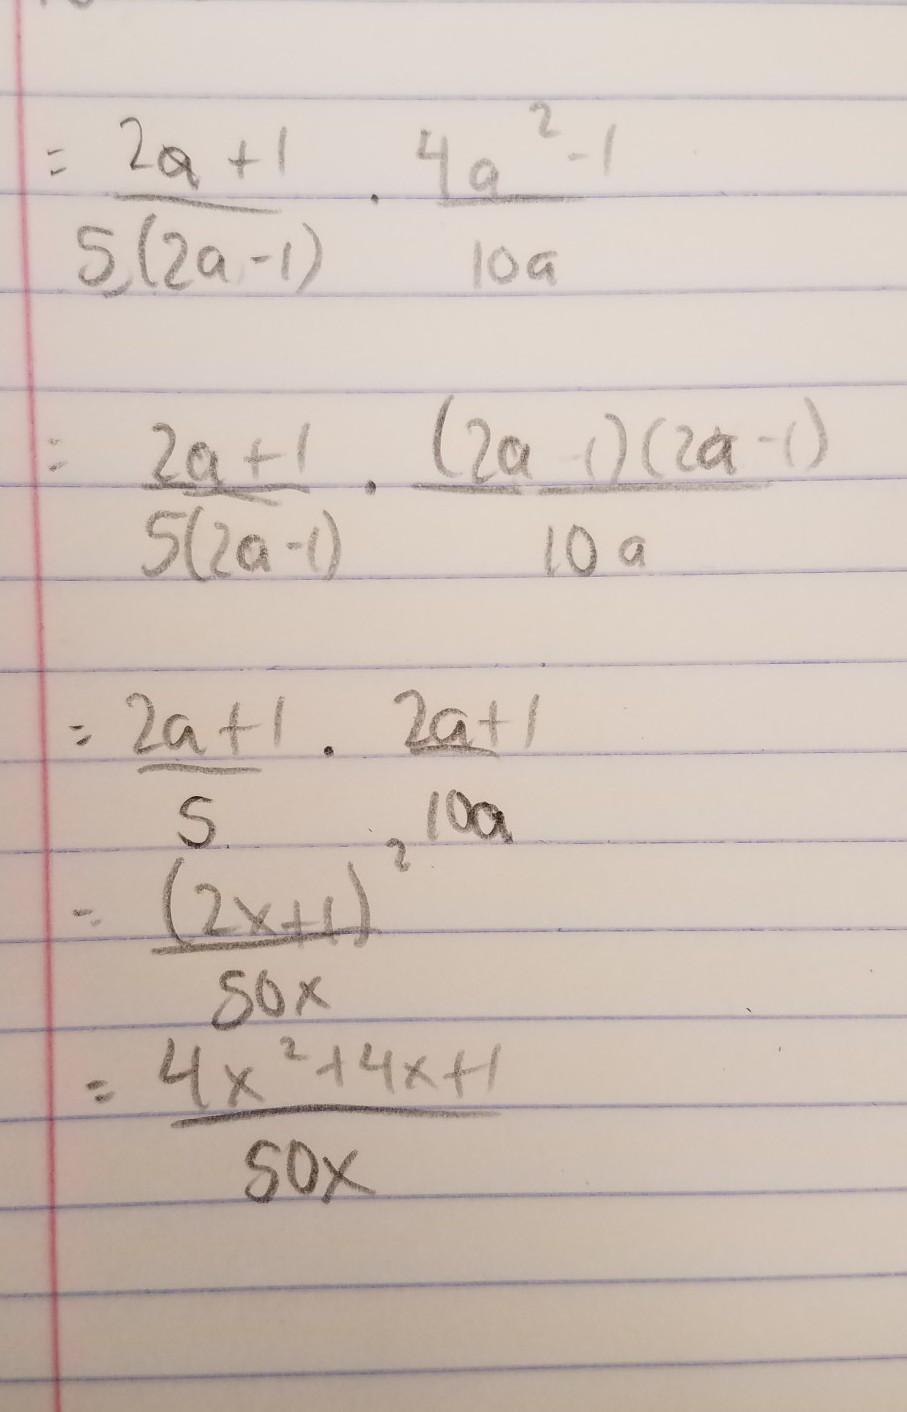 = 2a+1 / 5(2a-1) · 4a² -1 / 10a
= 2a+1 / 5(2a-1) · (2a-1)(2a-1) / 10a
= 2a+1 / 5 · 2a+1 / 10a
= (2x+1)² / 50x
= 4x²+4x+1 / 50x